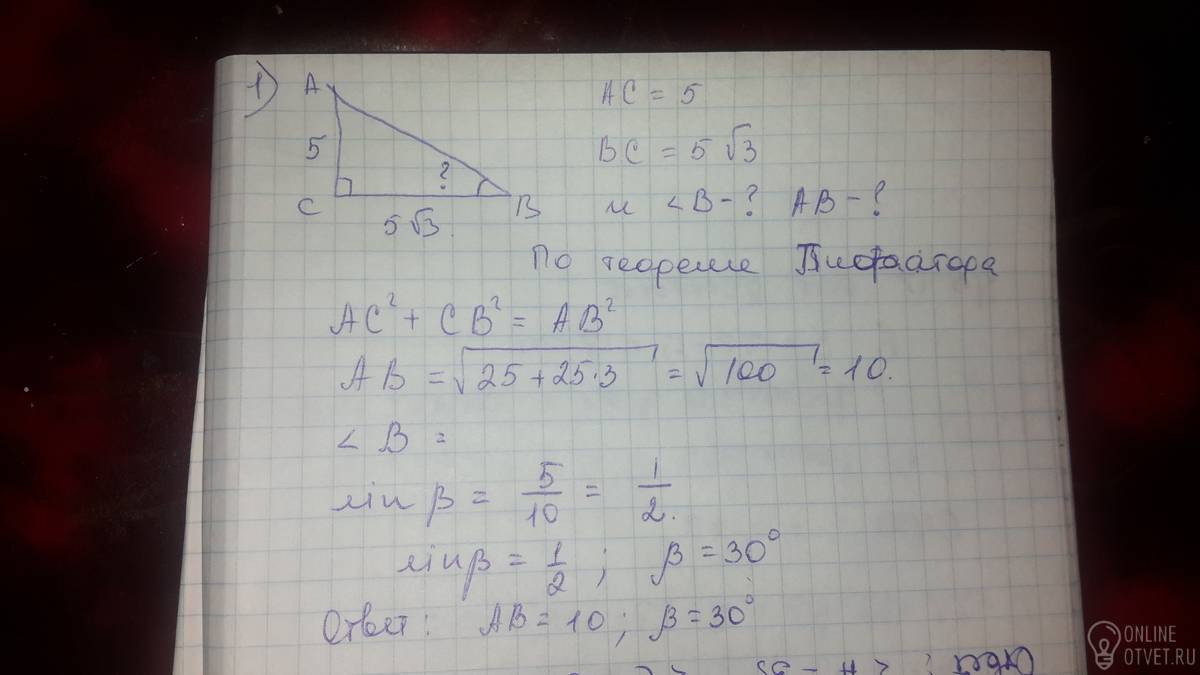 1) A
5
?
C
B
5√3.
AC = 5
BC = 5√3
и <B-? AB-?
По теореме Пифагора
AC² + CB² = AB²
AB = √25+25·3 = √100 = 10.
< B =
sin β = 5/10 = 1/2.
sin β = 1/2 ; β = 30°
Ответ: AB = 10; β = 30°
ONLINE
OTVET.RU